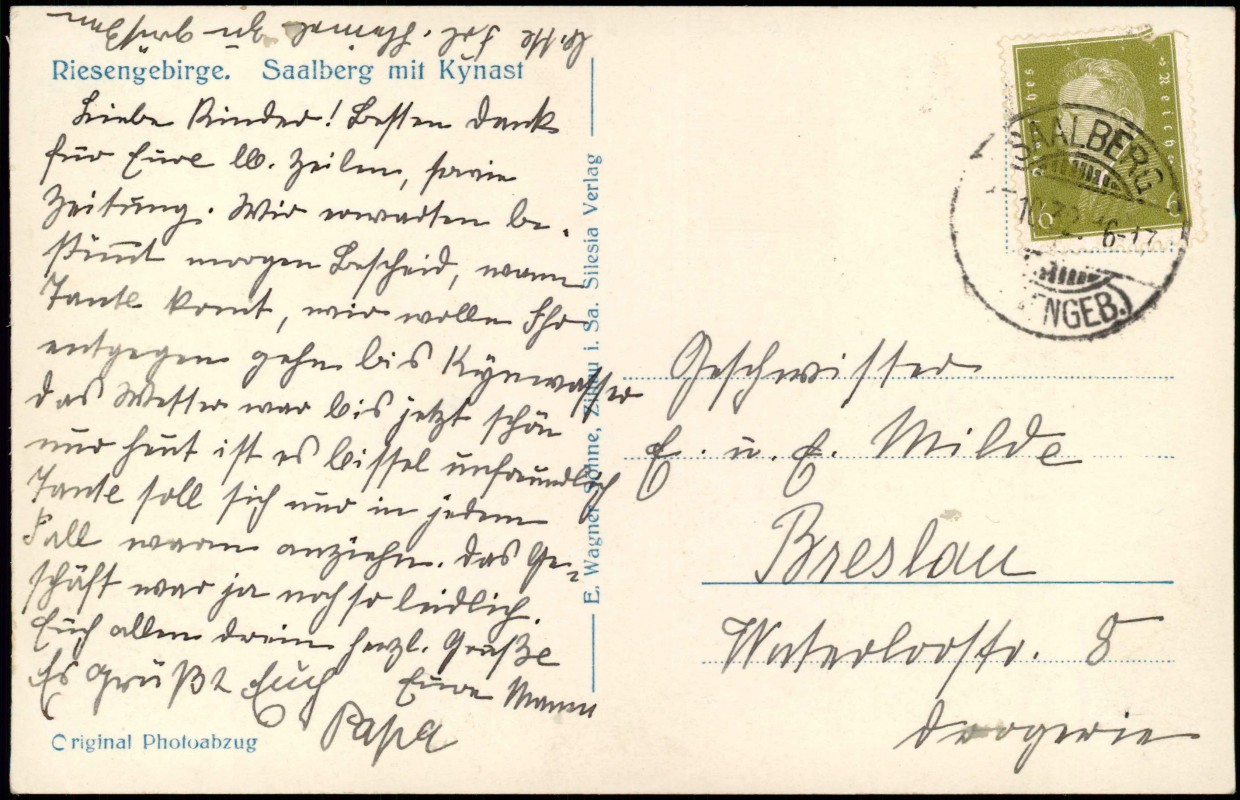 Bitte frl. Heimat zu grüßen
Riesengebirge. Saalberg mit Kynast
Liebe Kinder! Besten Dank
für Eure lb. Zeilen, sowie
Zeitung. Wir erwarten be-
stimmt morgen Bescheid, wann
Tante komt, wir wollen Ihr
entgegen gehn bis Kynwasser
das Wetter war bis jetzt schön
nur heut ist es bissel unfreundlich
Tante soll sich nur in jedem
Fall warm anziehn. Das Ge-
schäft war ja noch so leidlich.
Euch allen drein herzl. Grüße
Es grüßt Euch Eure Mama
Papa
Original Photoabzug
E. Wagner Söhne, Zittau i. Sa. Silesia Verlag
Deutsches Reich
6 6
SAALBERG
10.32 16-17
ENGEB.)
Geschwister
E. u. E. Milde
Breslau
Waterloostr. 8
Drogerie